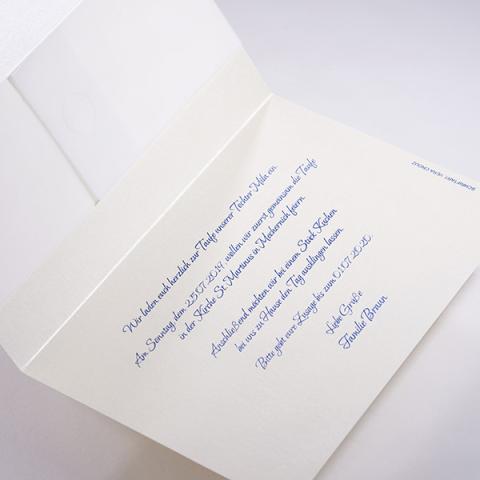 Wir laden euch herzlich zur Taufe unserer Tochter Mila ein.
Am Sonntag, dem 25.07.2019, wollen wir zuerst gemeinsam die Taufe
in der Kirche St. Martinus in Mechernich feiern.
Anschließend möchten wir bei einem Stück Kuchen
bei uns zu Hause den Tag ausklingen lassen.
Bitte gebt eure Zusage bis zum 01.07.2020.
Liebe Grüße
Familie Braun
SCHRIFTART: VERA CROUZ